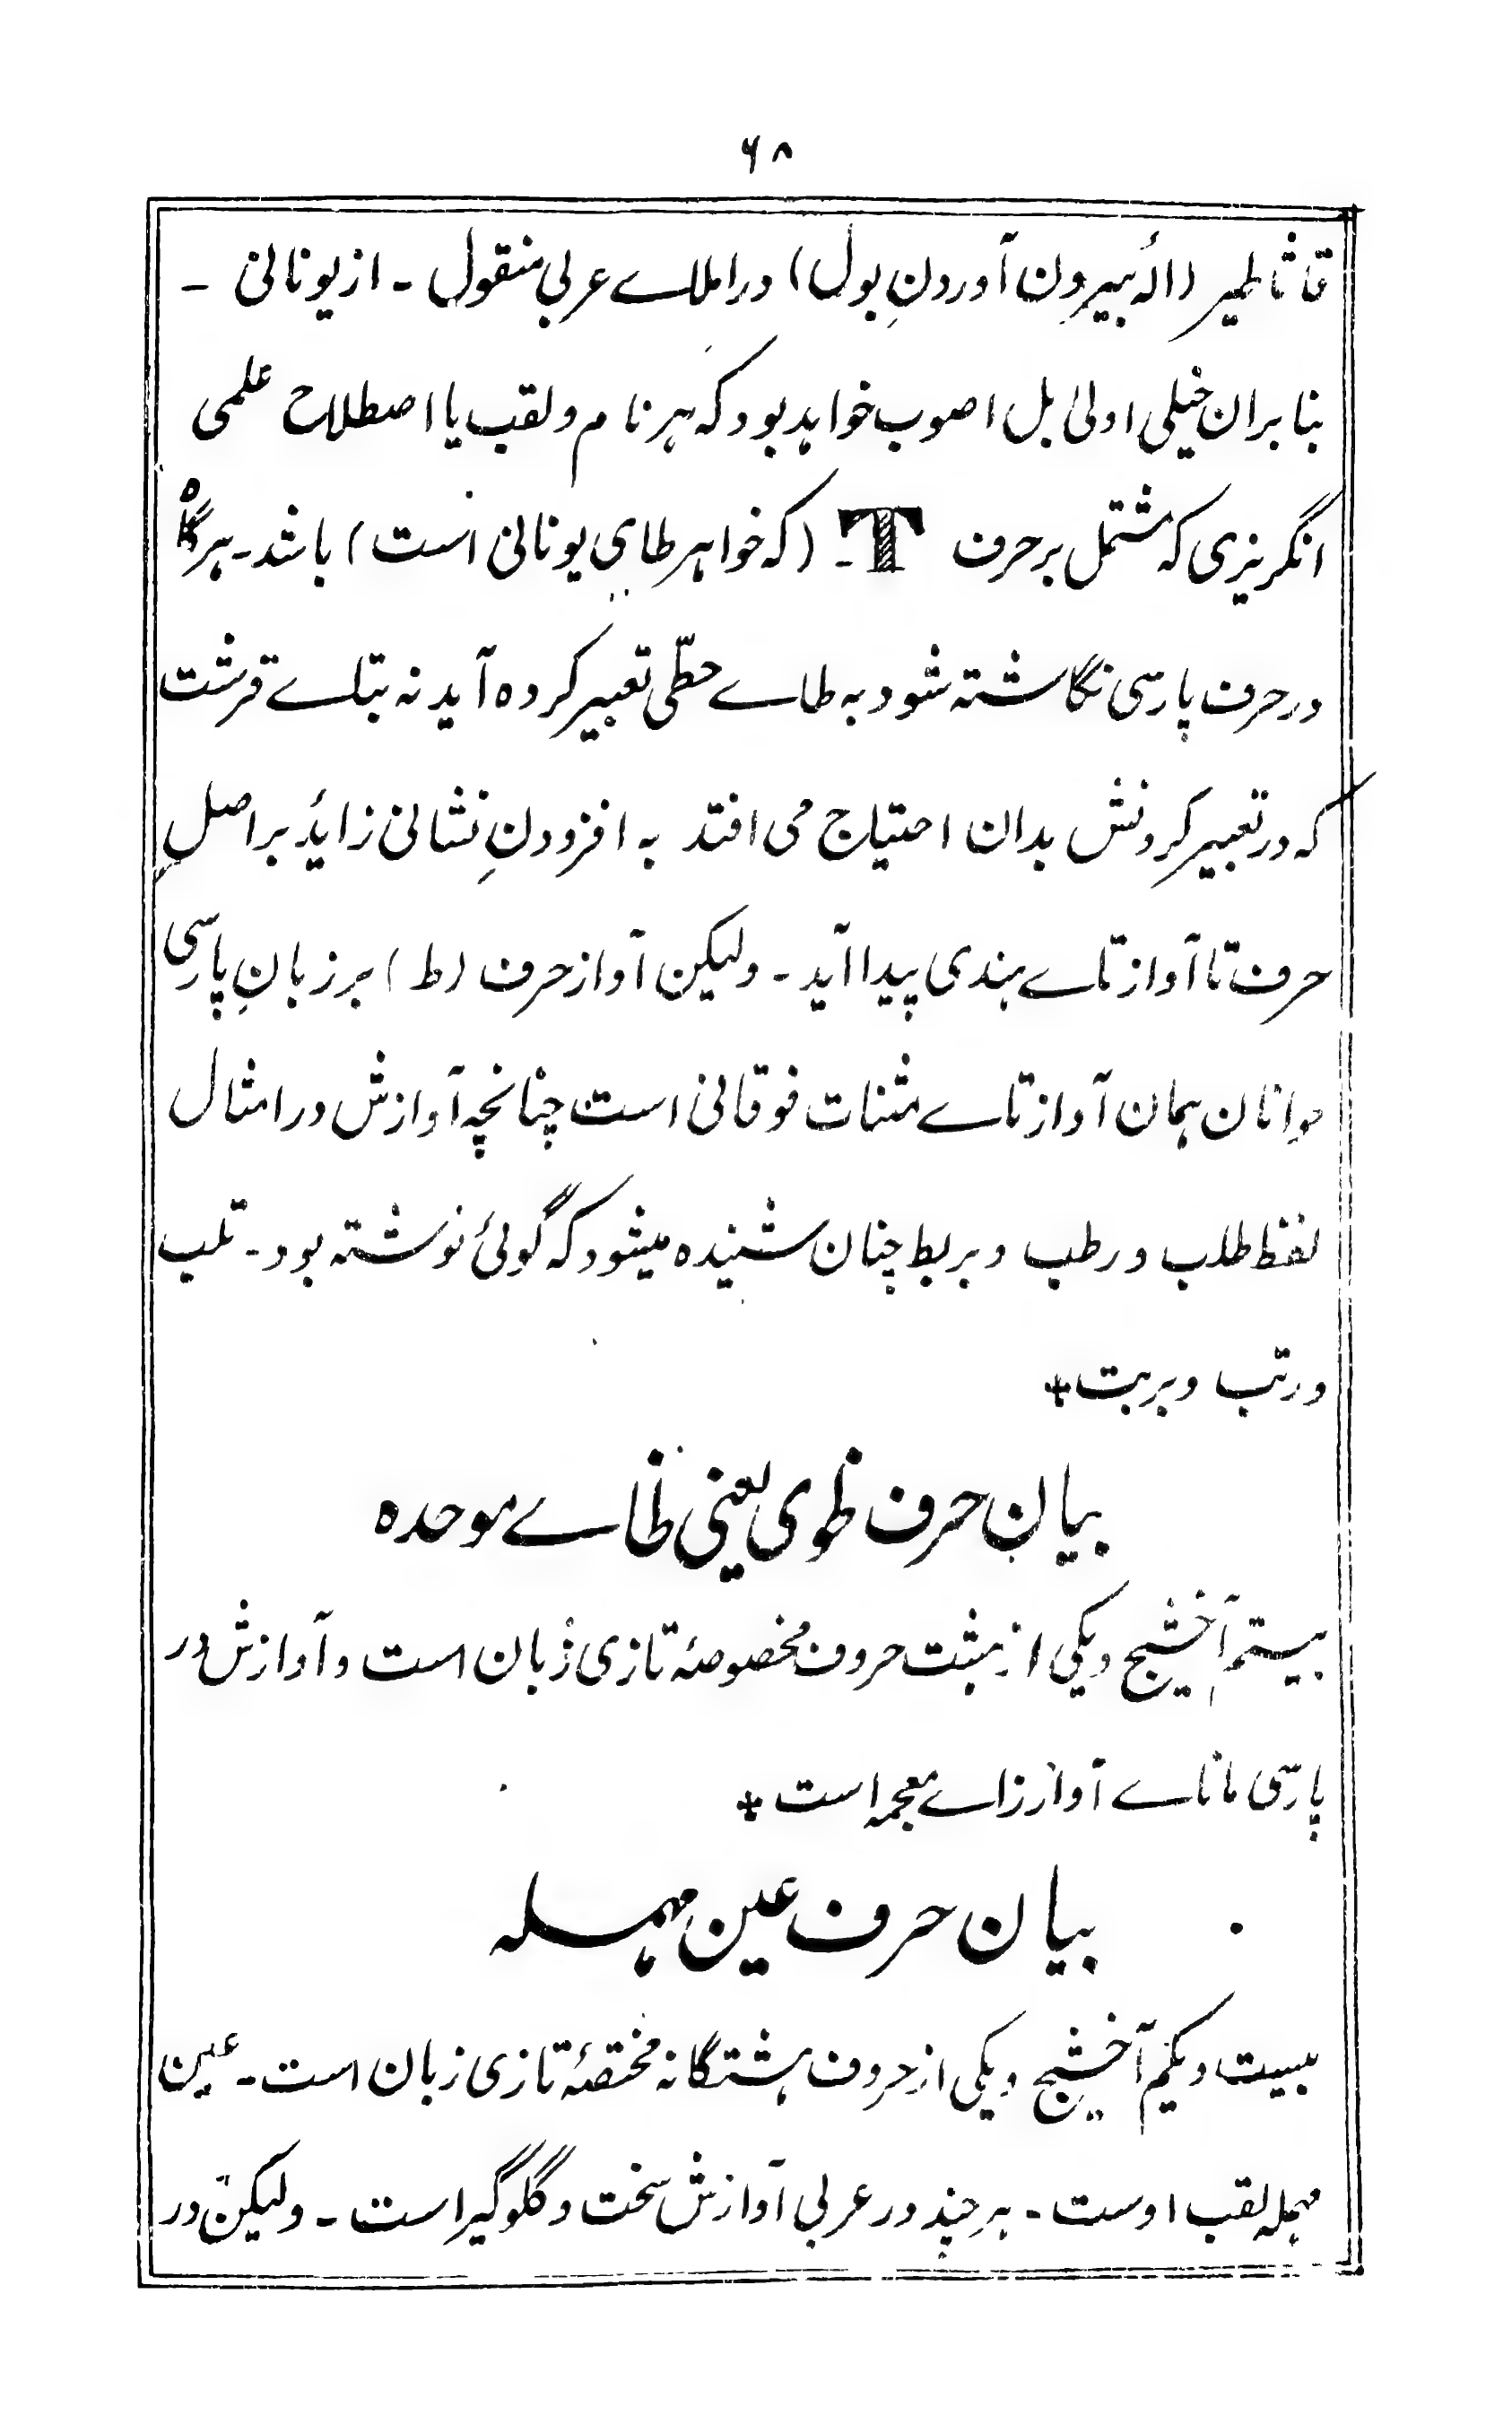 ۶۸
قاثاطیر (الۂ بیرون آوردنِ بول) در املاے عربی منقول - از یونانی -
بنابران خیلی اولیٰ بل اصوب خواہد بود کہ ہر نام و لقب یا اصطلاح علمی
انگریزی کہ مشتمل بر حرف T - (کہ خواہر طای یونانی است) باشد - ہرگاہ
در حرف پارسی نگاشتہ شود بہ طاے حطّی تعبیر کردہ آید نہ بتاے قرشت
کہ در تعبیر کردنش بدان احتیاج می افتد بہ افزودنِ نشانی زائد بر اصل
حرف تا آواز تاے ہندی پیدا آید - ولیکن آواز حرف (ط) بر زبانِ پارسی
دانان ہمان آواز تاے مثنات فوقانی است چنانچہ آوازش در امثال
لفظ طلب و رطب و بربط چنان شنیدہ میشود کہ گوئی نوشتہ بود - تلب
و رتب و بربت +
بیان حرف ظوی یعنی ظاے موحدہ
بیستم آخشیج و یکی از ہشت حروف مخصوصۂ تازی زبان است و آوازش در
پارسی ماناے آواز زاے معجمہ است +
بیان حرف عین مہملہ
بیست و یکم آخشیج و یکی از حروف ہشتگانہ مختصۂ تازی زبان است - عین
مہملہ لقب اوست - ہر چند در عربی آوازش سخت و گلوگیر است - ولیکن در